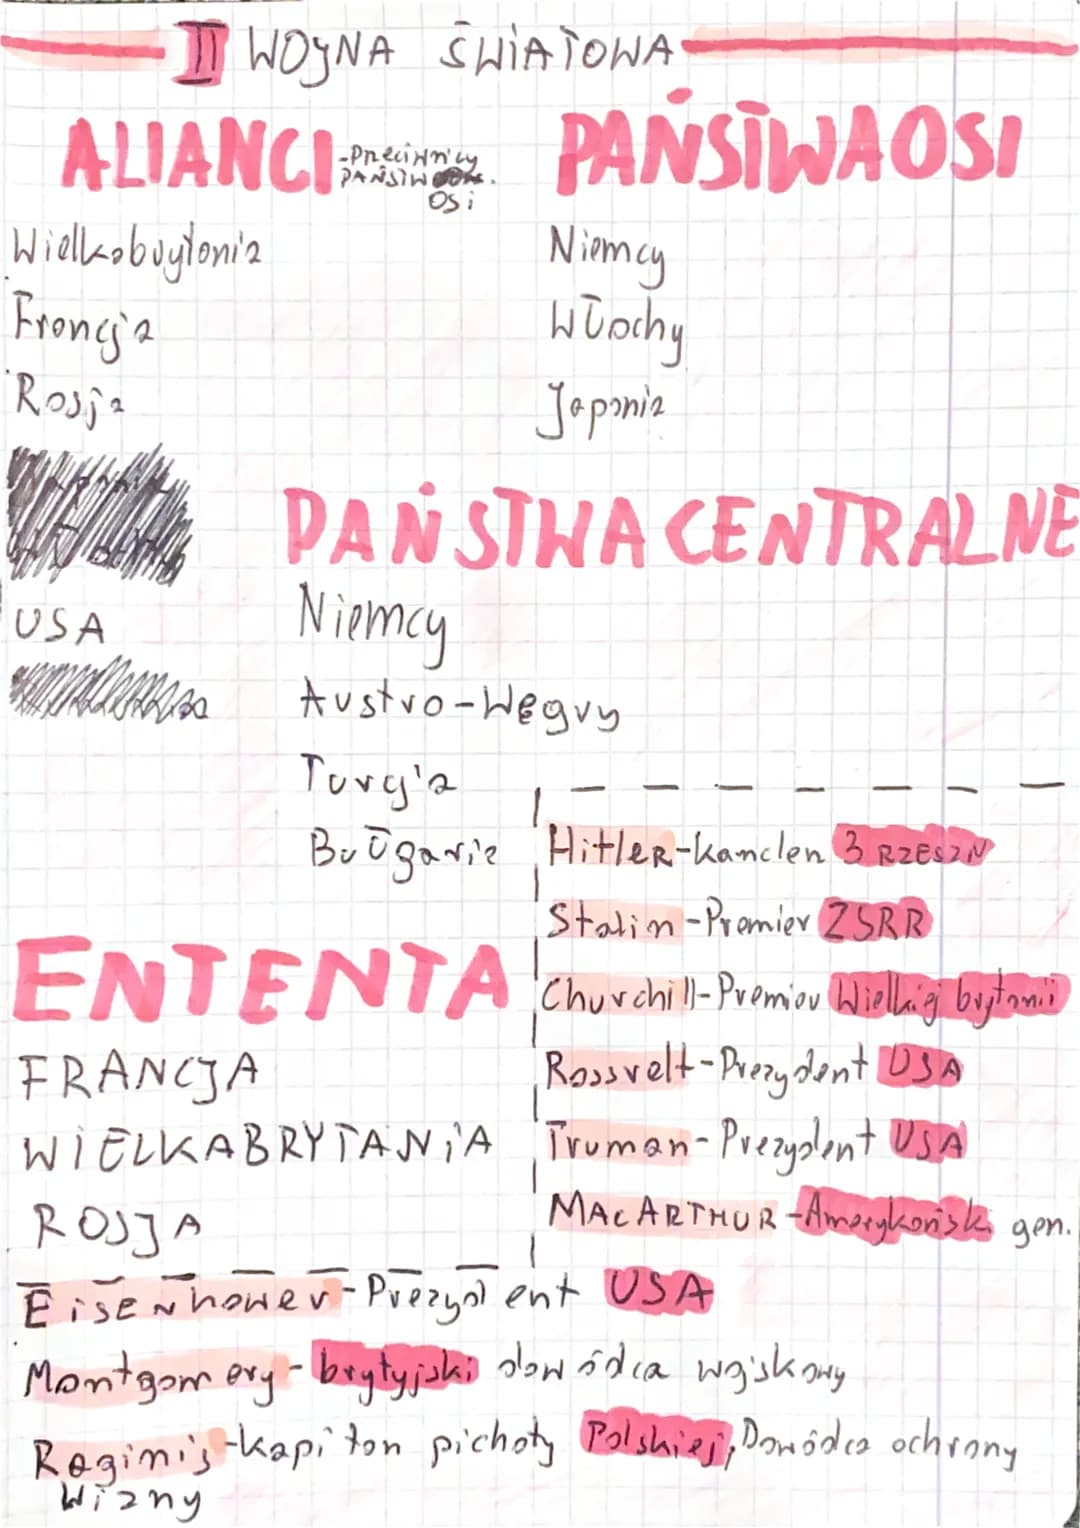 II WOJNA ŚWIATOWA
ALIANCI -Przeciwnicy
PAŃSTW
OSi
Wielkobrytania
Francja
Rosja
USA
PAŃSTWA OSI
Niemcy
Włochy
Japonia
PAŃSTWA CENTRALNE
Niemcy
Austro-Węgry
Turcja
Bułgaria
ENTENTA
FRANCJA
WIELKABRYTANiA
ROSJA
HitleR-kanclerz 3 RZESZY
Stalin-Premier ZSRR
Churchill-Premier Wielkiej brytanii
Rossvelt-Prezydent USA
Truman-Prezydent USA
MACARTHUR-Amerykański gen.
EiSENhower-Prezydent USA
Montgomery-brytyjski dowódca wojskowy
Raginis-kapitan pichoty Polskiej, Dowódca ochrony
Wizny